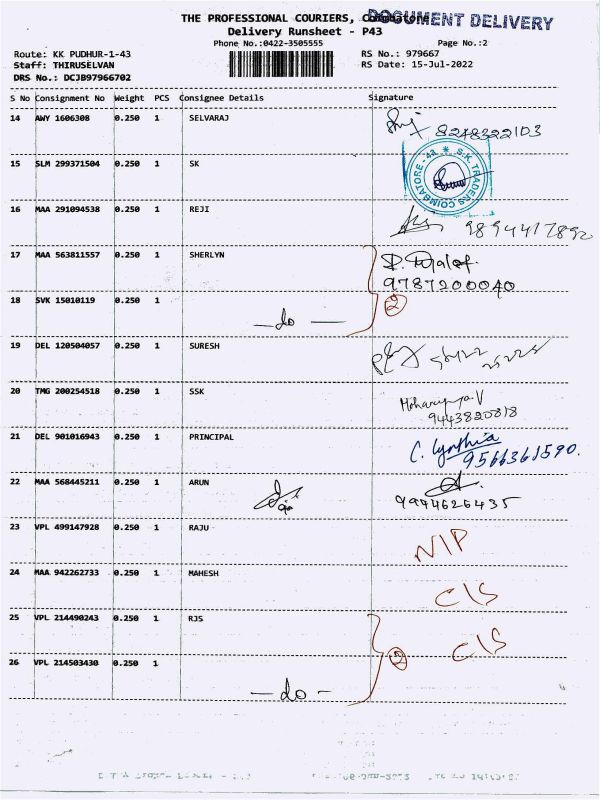 THE PROFESSIONAL COURIERS, Coimbatore
DOCUMENT DELIVERY
Delivery Runsheet - P43
Phone No.:0422-3505555 Page No.:2
Route: KK PUDHUR-1-43 RS No.: 979667
Staff: THIRUSELVAN RS Date: 15-Jul-2022
DRS No.: DCJB97966702
S No Consignment No Weight PCS Consignee Details Signature
14 AWY 1606308 0.250 1 SELVARAJ 8248322103
15 SLM 299371504 0.250 1 SK S.K. TRADERS COIMBATORE - 43
16 MAA 291094538 0.250 1 REJI 9894417892
17 MAA 563811557 0.250 1 SHERLYN
9787200040
18 SVK 15010119 0.250 1 2
—do—
19 DEL 120504057 0.250 1 SURESH
20 TMG 200254518 0.250 1 SSK
9443820818
21 DEL 901016943 0.250 1 PRINCIPAL C. Cynthia
9566361590.
22 MAA 568445211 0.250 1 ARUN
9994626435
23 VPL 499147928 0.250 1 RAJU NIP
24 MAA 942262733 0.250 1 MAHESH C/S
25 VPL 214490243 0.250 1 RJS C/S
26 VPL 214503430 0.250 1 2
—do—